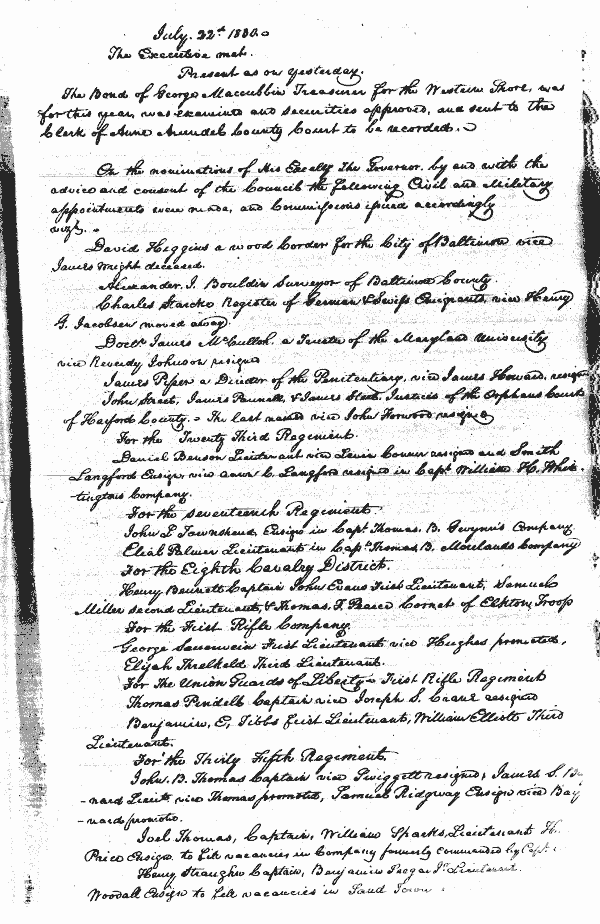 July. 22d 1830.
The Executive met.
Present as on yesterday.
The Bond of George Maccubbin Treasurer for the Western Shore, was
for this year, was examined and securities approved, and sent to the
Clerk of Anne Arundel County Court to be recorded.
On the nominations of His Excelly The Governor. by and with the
advice and consent of the Council the following Civil and Military
appointments were made, and Commissions issued accordingly
vizt.
David Higgins a wood Corder for the City of Baltimore vice
James Wright deceased.
Alexander. J. Bouldin Surveyor of Baltimore County.
Charles Starcke Register of German & Swiss Emigrants, vice Henry
G. Jacobsen moved away.
Doctr James McCulloh. a Trustee of the Maryland University
vice Reverdy Johnson resigned
James Piper a Director of the Penitentiary, vice James Howard. resigned
John Street, James Pannell, & James Justices of the Orphans Court
of Harford County. - The last named vice John Forwood resigned
For the Twenty Third Regiment.
Daniel Benson Lieutenant vice Levin Conner resigned and Smith
Langford Ensign, vice C. Langford resigned in Capt. William H. Whit-
-tingtons Company.
For the Seventeenth Regiment
John L Townshend Ensign in Capt Thomas. B. Gwynn's Company
Palmer Lieutenant in Capt Thomas. B. Morelands Company
For the Eighth Cavalry District.
Henry Bennett Captain John Evans First Lieutenant, Samuel
Miller second Lieutenant, & Thomas. F. Pearce Cornet of Elkton Troop
For the First Rifle Company
George First Lieutenant vice Hughes promoted,
Elijah Threlkeld Third Lieutenant.
For The Union Guards of Liberty - First Rifle Regiment
Thomas Pindell Captain vice Joseph S. resigned
Benjamin, E, Tibbs first Lieutenant, William Elliott Third
Lieutenant.
For the Thirty Fifth Regiment.
John. B. Thomas Captain vice Swiggett resigned, James S.
-nard Lieutt. vice Thomas promoted, Samuel Ridgway Ensign vice Bay
-nard promoted.
Joel Thomas, Captain, William Sparks, Lieutenant H.
Price Ensign. to fill vacancies in Company formerly commanded by Capt.
Henry Straughn Captain, Benjamin Jr. Lieutenant.
Woodall Ensign to fill vacancies in Sand Town